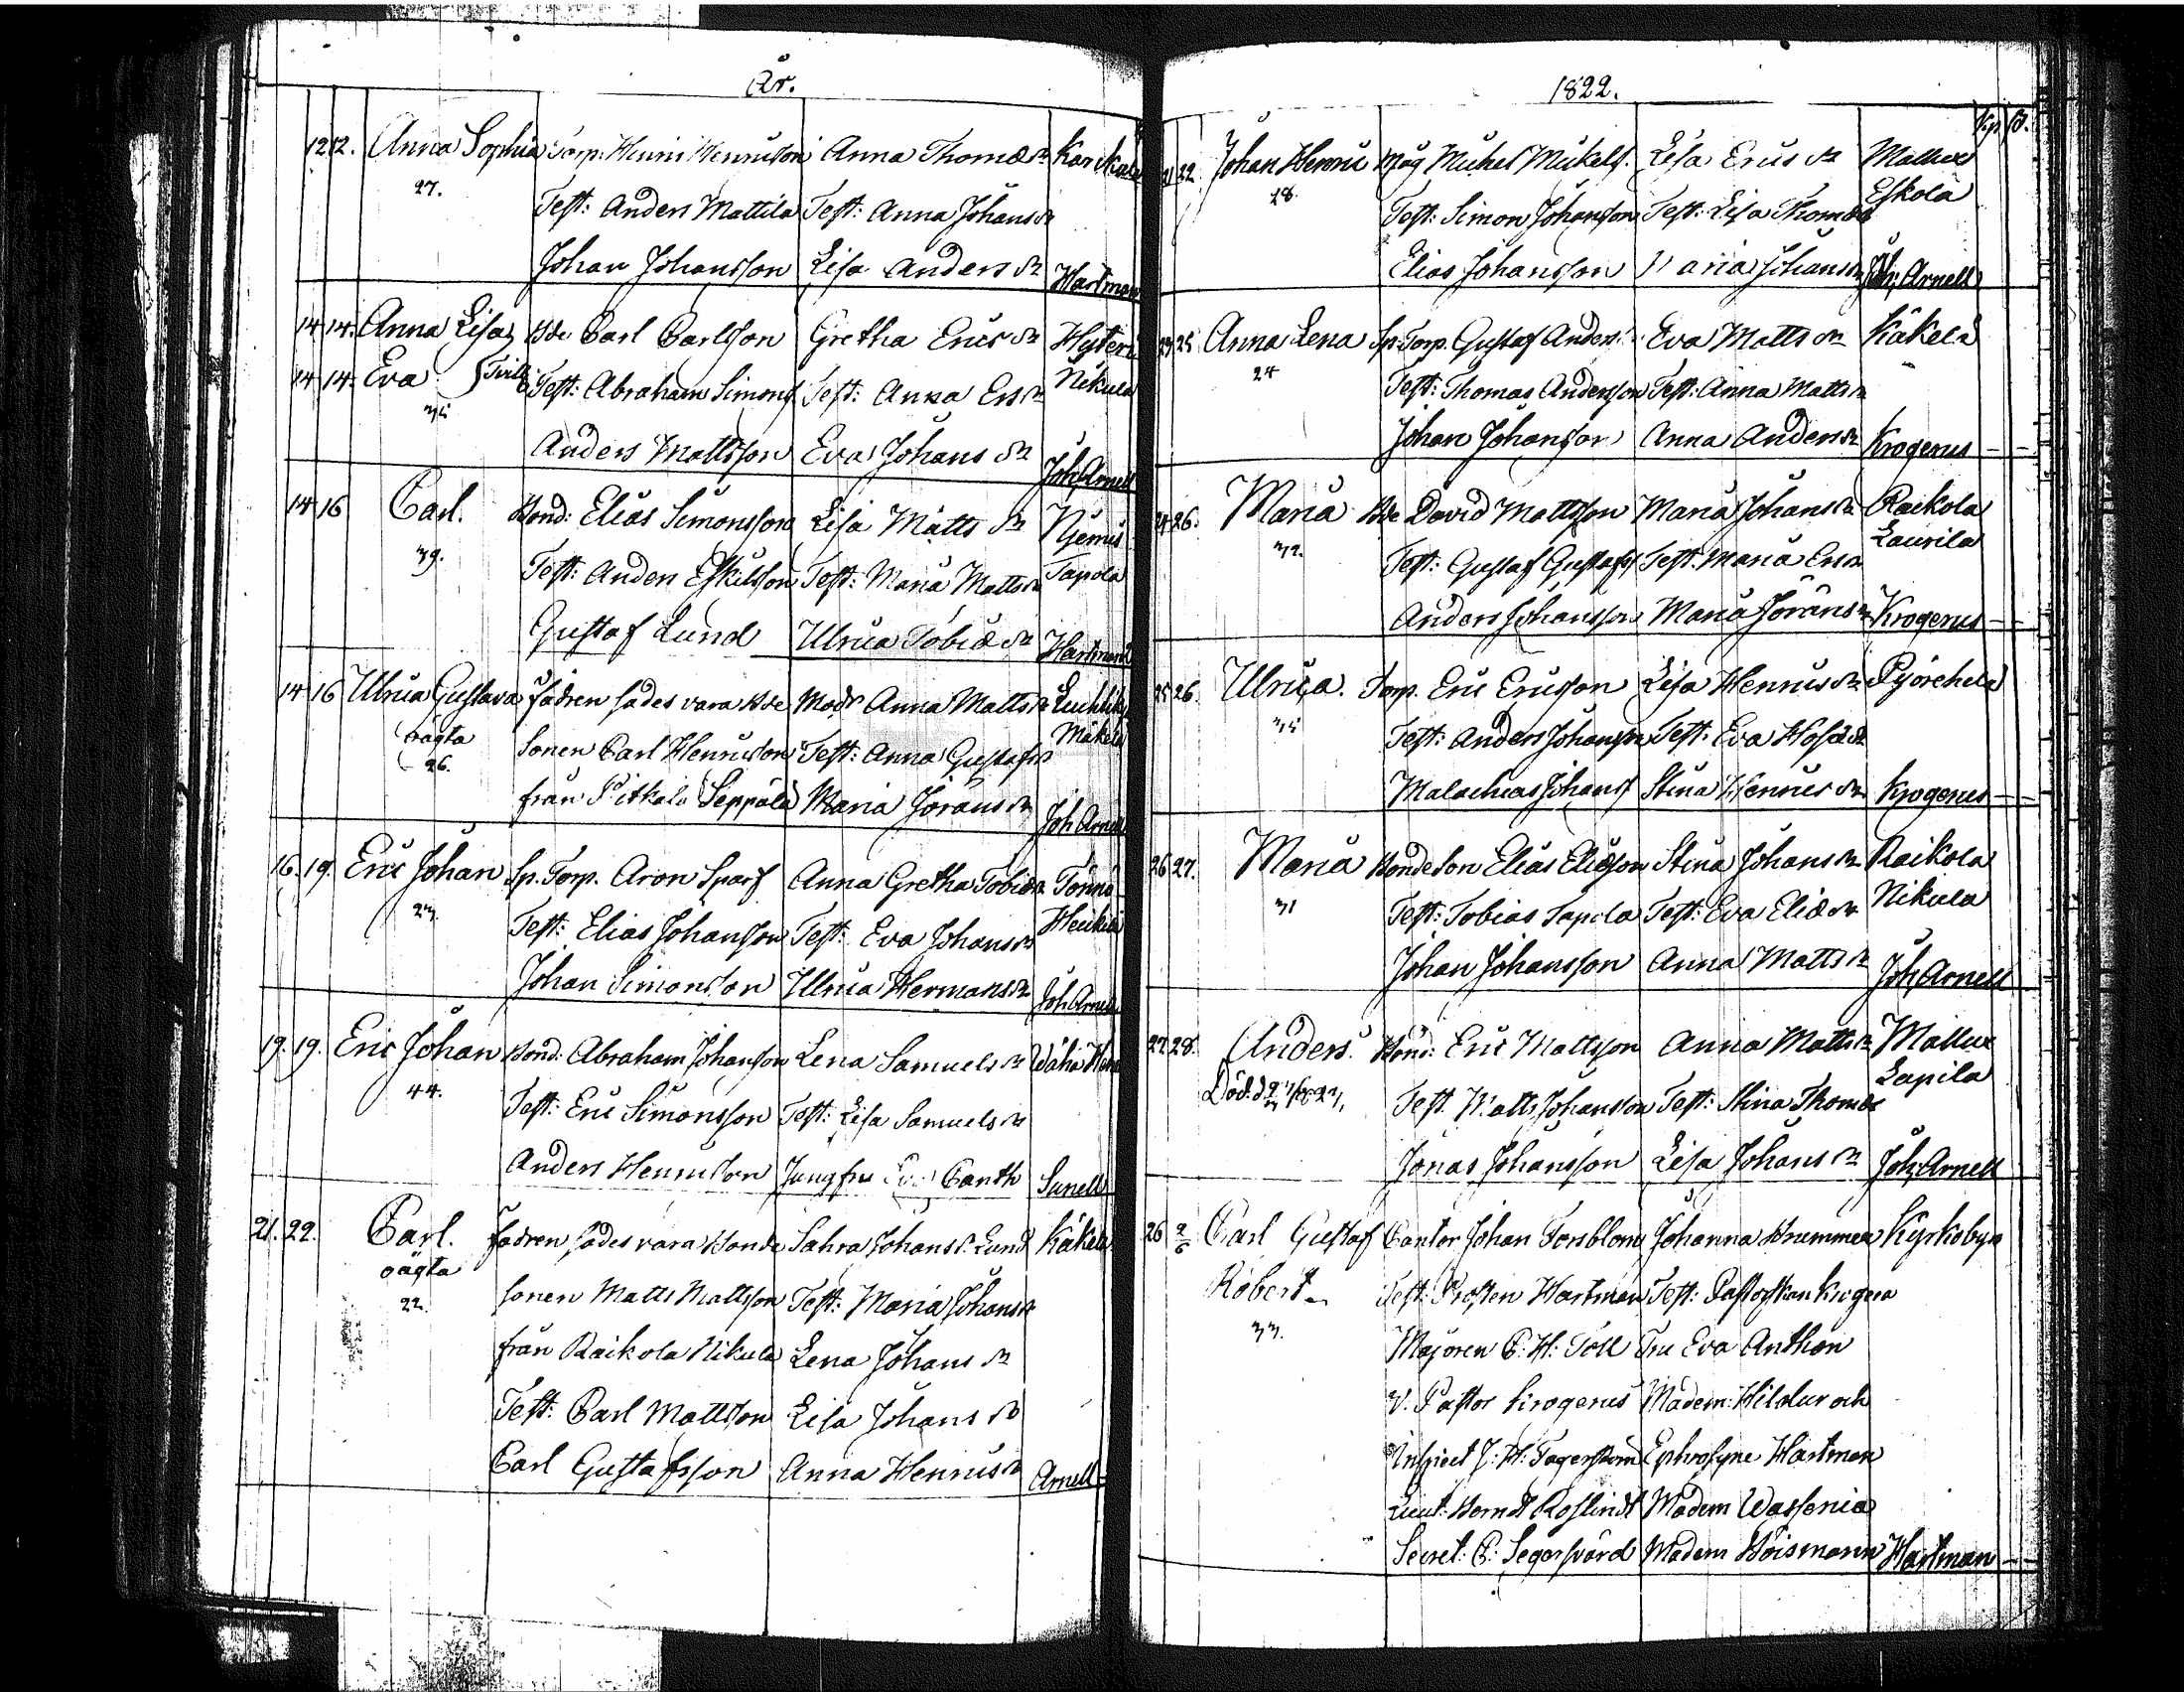 År.
12 12. Anna Sophia Torp. Henric Henricsson Anna Thomæ dr Karskala
27. Test: Anders Mattila Test: Anna Johans dr
Johan Johansson Lisa Anders dr Hartman
14 14. Anna Lisa Bde Carl Carlsson Gretha Erics dr Hyteri
14 14. Eva Tvill. Test: Abraham Simons Test: Anna Ers dr Nikula
35 Anders Mattsson Eva Johans dr Joh. Arnell
14 16 Carl. Bond: Elias Simonsson Lisa Matts dr Njemis
39. Test: Anders Eskilsson Test: Maria Matts dr Tapola
Gustaf Lund Ulrica Tobiæ dr Hartman
14 16 Ulrica Gustava Fadren sades vara Bde Modr Anna Matts dr
oägta sonen Carl Henricsson Test: Anna Gustafs dr Mäkelä
26. från Pitkälä Seppälä Maria Jörans dr Joh. Arnell
16. 19. Eric Johan Sp. Torp. Aron Sparf Anna Gretha Tobiæ dr
23. Test: Elias Johansson Test: Eva Johans dr Heikilä
Johan Simonsson Ulrica Hermans dr Joh. Arnell
19. 19. Eric Johan Bond: Abraham Johansson Lena Samuels dr
44. Test: Eric Simonsson Test: Lisa Samuels dr
Anders Henricsson Jungfru Eva Canth Sunell
21. 22. Carl. Fadren sades vara Bonde Sahra Johans d. Lund Käkelä
oägta sonen Matts Mattsson Test: Maria Johans dr
22. från Raikola Nikula Lena Johans dr
Test: Carl Mattsson Lisa Johans dr
Carl Gustafsson Anna Henrics dr Arnell
1822.
21 22. Johan Henric Måg Michel Mickels. Lisa Erics dr Mallux
28. Test: Simon Johansson Test: Lisa Thomæ Eskola
Elias Johansson Maria Johans dr Joh. Arnell
23 25 Anna Lena Sp. Torp. Gustaf Anders. Eva Matts dr Käkelä
24 Test: Thomas Andersson Test: Anna Matts dr
Johan Johansson Anna Anders dr Krogerus
24 26. Maria Bde David Mattsson Maria Johans dr Raikola
32. Test: Gustaf Gustafs Test: Maria Ers dr Laurila
Anders Johansson Maria Jörans dr Krogerus
25 26. Ulrica. Torp. Eric Ericsson Lisa Henrics dr Pyörehelä
35 Test: Anders Johansson Test: Eva Hosæ dr
Malachias Johans Stina Henrics dr Krogerus
26 27. Maria Bondeson Elias Eliæson Stina Johans dr Raikola
31 Test: Tobias Tapola Test: Eva Eliæ dr Nikula
Johan Johansson Anna Matts dr Joh. Arnell
27 28. Anders. Bond: Eric Mattsson Anna Matts dr Mallux
Död d. Test. Matts Johansson Test: Stina Thomæ Lapila
Jonas Johansson Lisa Johans dr Joh. Arnell
26 Carl Gustaf Cantor Johan Forsblom Johanna Brummer Kyrkobyn
Robert Test: Prosten Hartman Test: Pastorskan Krogera
33. Majoren C. H. Toll Fru Eva Anthon
V. Pastor Krogerus Madem: Hildur och
Inspect J. H. Fagerström Ephrosyne Hartman
Lieut: Berndt Roslindt Madem Wassenia
Secret: C. Segersvärd Madem Hoismann Hartman